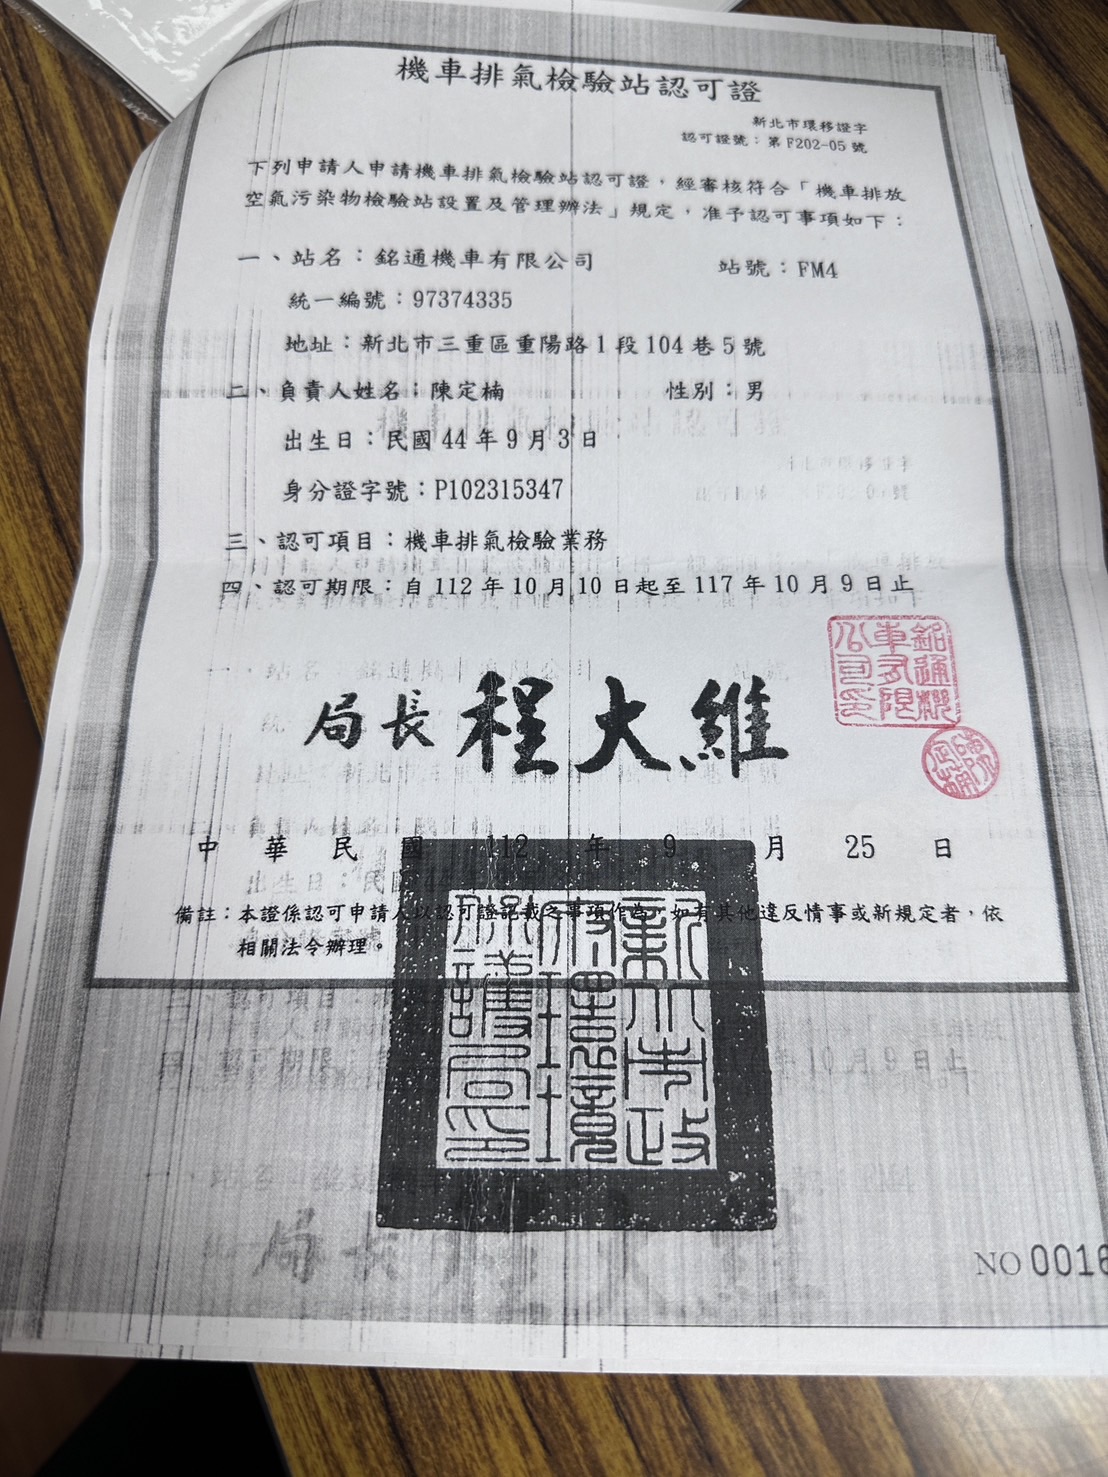 機車排氣檢驗站認可證
新北市環移證字
認可證號：第F202-05號
下列申請人申請機車排氣檢驗站認可證，經審核符合「機車排放
空氣污染物檢驗站設置及管理辦法」規定，准予認可事項如下：
一、站名：銘通機車有限公司　站號：FM4
統一編號：97374335
地址：新北市三重區重陽路1段104巷5號
二、負責人姓名：陳定楠　性別：男
出生日：民國44年9月3日
身分證字號：P102315347
三、認可項目：機車排氣檢驗業務
四、認可期限：自112年10月10日起至117年10月9日止
銘通機車有限公司印
陳定楠
局長 程大維
中華民國112年9月25日
備註：本證係認可申請人以認可證記載之事項作為，如有其他違反情事或新規定者，依
相關法令辦理。
新北市政府環境保護局印
NO 0016